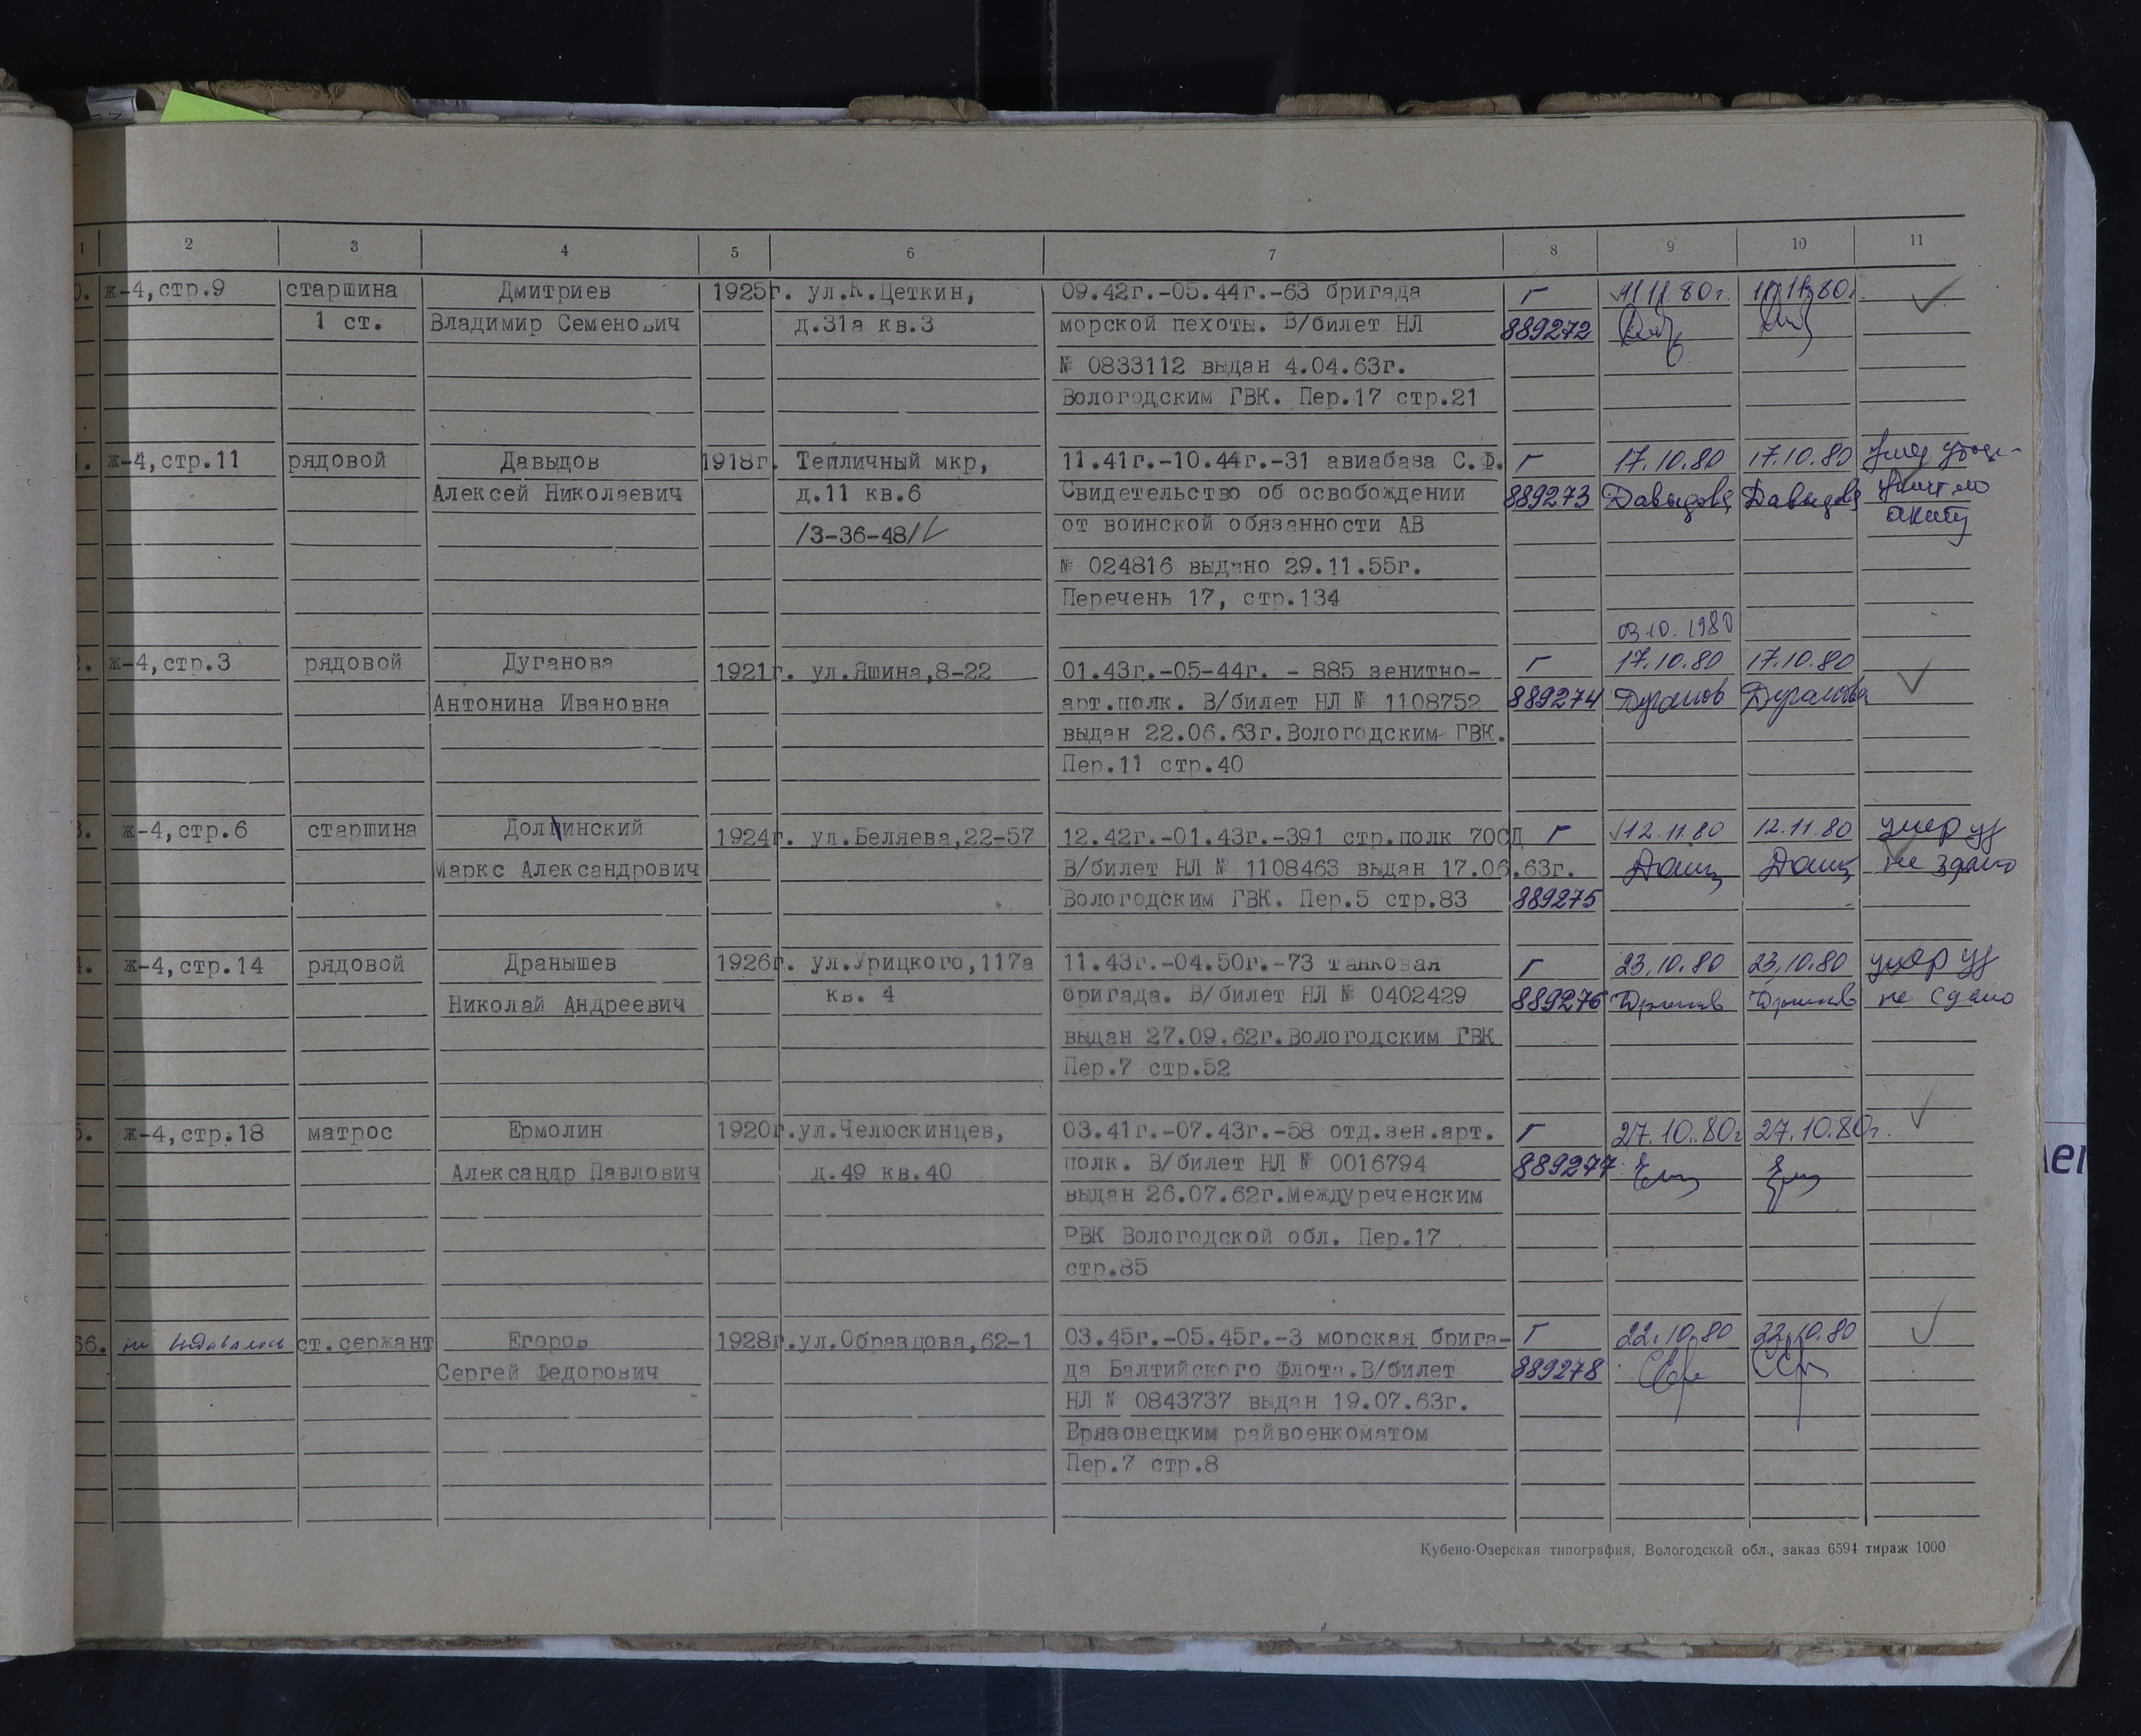 1 2 3 4 5 6 7 8 9 10 11
ж-4,стр.9 старшина Дмитриев 1925г. ул.К.Цеткин, 09.42г.-05.44г.-63 бригада Г 11.11.80г. 11.11.80г.
1 ст. Владимир Семенович д.31а кв.3 морской пехоты. В/билет НЛ 889272
№ 0833112 выдан 4.04.63г.
Вологодским ГВК. Пер.17 стр.21
ж-4,стр.11 рядовой Давыдов 1918г. Тепличный мкр, 11.41г.-10.44г.-31 авиабаза С.Ф. Г 17.10.80 17.10.80
Алексей Николаевич д.11 кв.6 Свидетельство об освобождении 889273 Давыдов Давыдов
/3-36-48/ от воинской обязанности АВ акту
№ 024816 выдано 29.11.55г.
Перечень 17, стр.134
03.10.1980
ж-4,стр.3 рядовой Дуганова 1921г. ул.Яшина,8-22 01.43г.-05-44г. - 885 зенитно- Г 17.10.80 17.10.80
Антонина Ивановна арт.полк. В/билет НЛ № 1108752 889274 Дуганов Дуганова
выдан 22.06.63г.Вологодским ГВК.
Пер.11 стр.40
ж-4,стр.6 старшина Долинский 1924г. ул.Беляева,22-57 12.42г.-01.43г.-391 стр.полк 70СД Г 12.11.80 12.11.80 умер уд
Маркс Александрович В/билет НЛ № 1108463 выдан 17.06.63г. не здано
Вологодским ГВК. Пер.5 стр.83 889275
ж-4,стр.14 рядовой Дранышев 1926г. ул.Урицкого,117а 11.43г.-04.50г.-73 танковая Г 23.10.80 23.10.80 умер уд
Николай Андреевич кв. 4 бригада. В/билет НЛ № 0402429 889276 не сдано
выдан 27.09.62г.Вологодским ГВК
Пер.7 стр.52
ж-4,стр.18 матрос Ермолин 1920г.ул.Челюскинцев, 03.41г.-07.43г.-58 отд.зен.арт. Г 27.10.80г 27.10.80г.
Александр Павлович д.49 кв.40 полк. В/билет НЛ № 0016794 889277
выдан 26.07.62г.Междуреченским
РВК Вологодской обл. Пер.17
стр.85
66. не выдавалось ст.сержант Егоров 1928г.ул.Образцова,62-1 03.45г.-05.45г.-3 морская брига- Г 22.10.80 22.10.80
Сергей Федорович да Балтийского Флота.В/билет 889278
НЛ № 0843737 выдан 19.07.63г.
Ерязовецким райвоенкоматом
Пер.7 стр.8
Кубено-Озерская типография, Вологодской обл., заказ 6594 тираж 1000